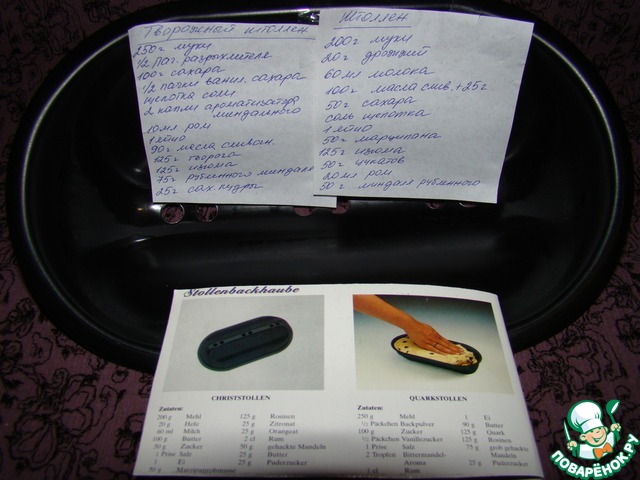 Творожный штоллен
250г муки
1/2 пач. разрыхлителя
100г сахара
1/2 пачки ванил. сахара
щепотка соли
2 капли ароматизатора
миндального
10мл ром
1 яйцо
90г масла сливочн.
125г творога
125г изюма
75г рубленного миндаля
25г сах. пудры
Штоллен
200г муки
20г дрожжей
60мл молока
100г масла слив. +25г
50г сахара
соль щепотка
1 яйцо
50г марципана
125г изюма
50г цукатов
20мл ром
50г миндаля рубленного
Stollenbackhaube
CHRISTSTOLLEN
Zutaten:
200 g Mehl 125 g Rosinen
20 g Hefe 25 g Zitronat
60 ml Milch 25 g Orangeat
100 g Butter 2 cl Rum
50 g Zucker 50 g gehackte Mandeln
1 Prise Salz 25 g Butter
1 Ei 25 g Puderzucker
50 g Marzipanrohmasse
QUARKSTOLLEN
Zutaten:
250 g Mehl 1 Ei
1/2 Päckchen Backpulver 90 g Butter
100 g Zucker 125 g Quark
1/2 Päckchen Vanillezucker 125 g Rosinen
1 Prise Salz 75 g grob gehackte
2 Tropfen Bittermandel- Mandeln
Aroma 25 g Puderzucker
1 cl Rum
ПОВАРЁНОК.RU